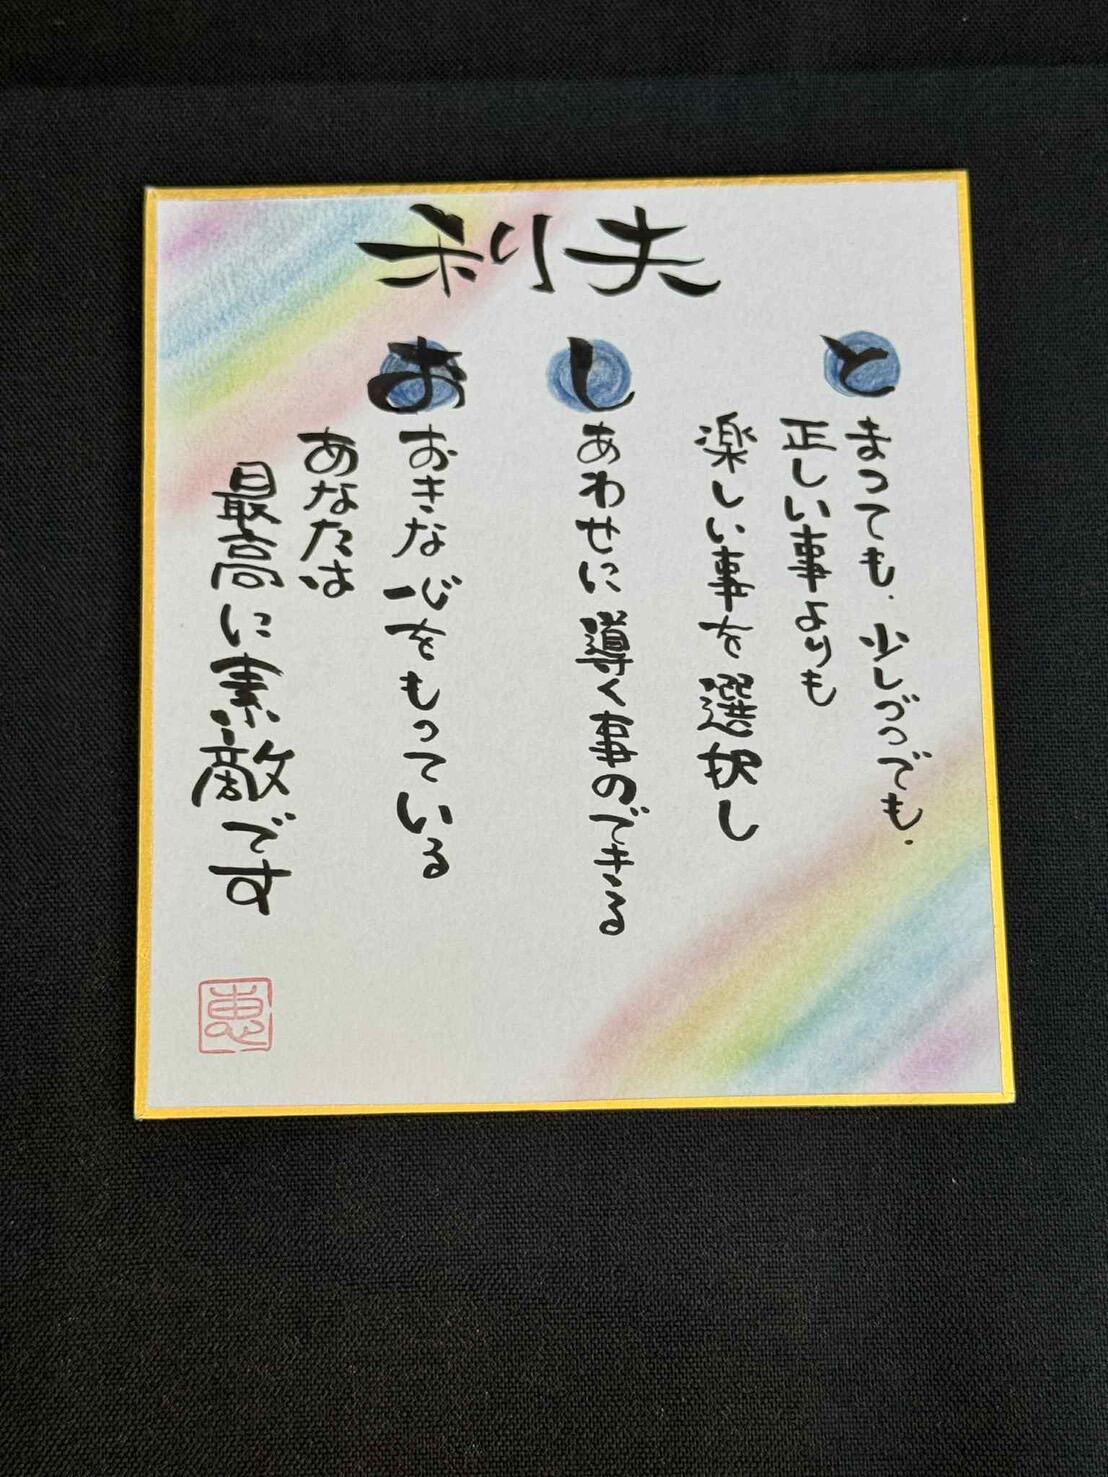 利夫
と
まっても、少しづつでも、
正しい事よりも
楽しい事を選択し
し
あわせに導く事のできる
お
おきな心をもっている
あなたは
最高に素敵です
恵